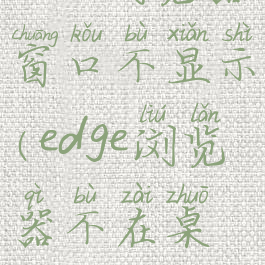 chuāng kǒu bù xiǎn shì
窗口不显示
liú lǎn
(edge浏览
qì bù zài zhuō
器不在桌